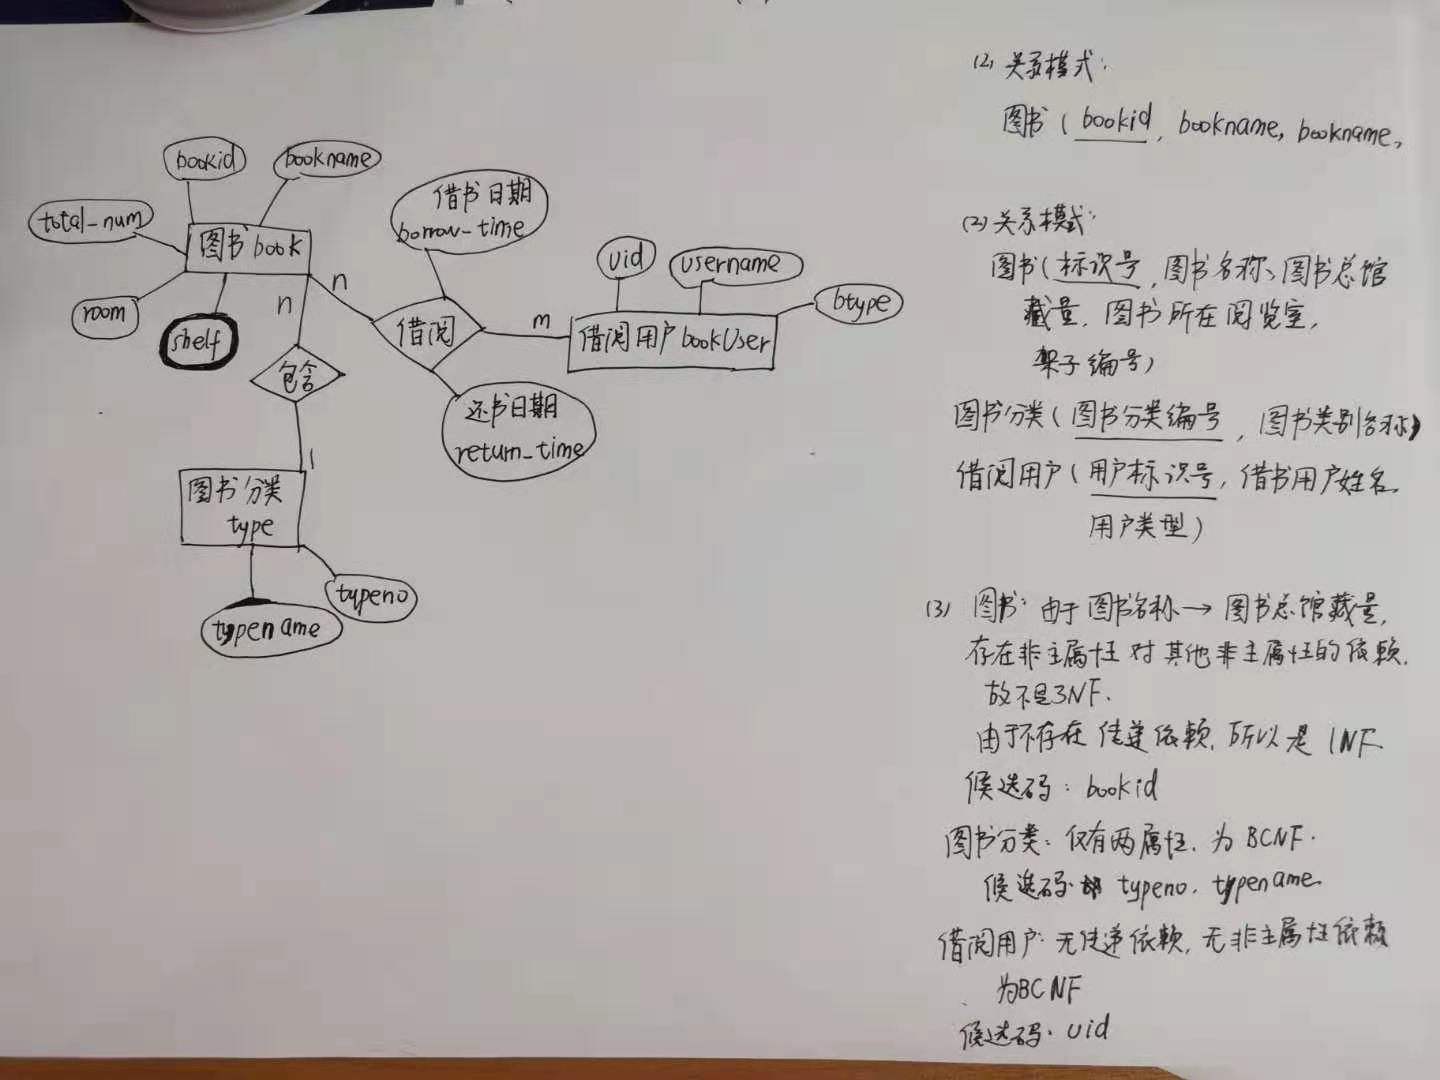 bookid
bookname
total_num
图书 book
room
shelf
n
n
包含
1
图书分类
type
typeno
typename
借书日期
borrow_time
借阅
还书日期
return_time
m
uid
username
btype
借阅用户 bookUser
(2) 关系模式:
图书 ( bookid, bookname, bookname,
(2) 关系模式:
图书 ( 标识号, 图书名称、图书总馆
藏量, 图书所在阅览室,
架子编号)
图书分类 ( 图书分类编号, 图书类别名称)
借阅用户 ( 用户标识号, 借书用户姓名,
用户类型)
(3) 图书: 由于图书名称→图书总馆藏量,
存在非主属性对其他非主属性的依赖,
故不是3NF.
由于不存在传递依赖, 所以是1NF.
候选码: bookid
图书分类: 仅有两属性, 为BCNF.
候选码: typeno, typename
借阅用户: 无传递依赖, 无非主属性依赖
为BCNF
候选码: uid